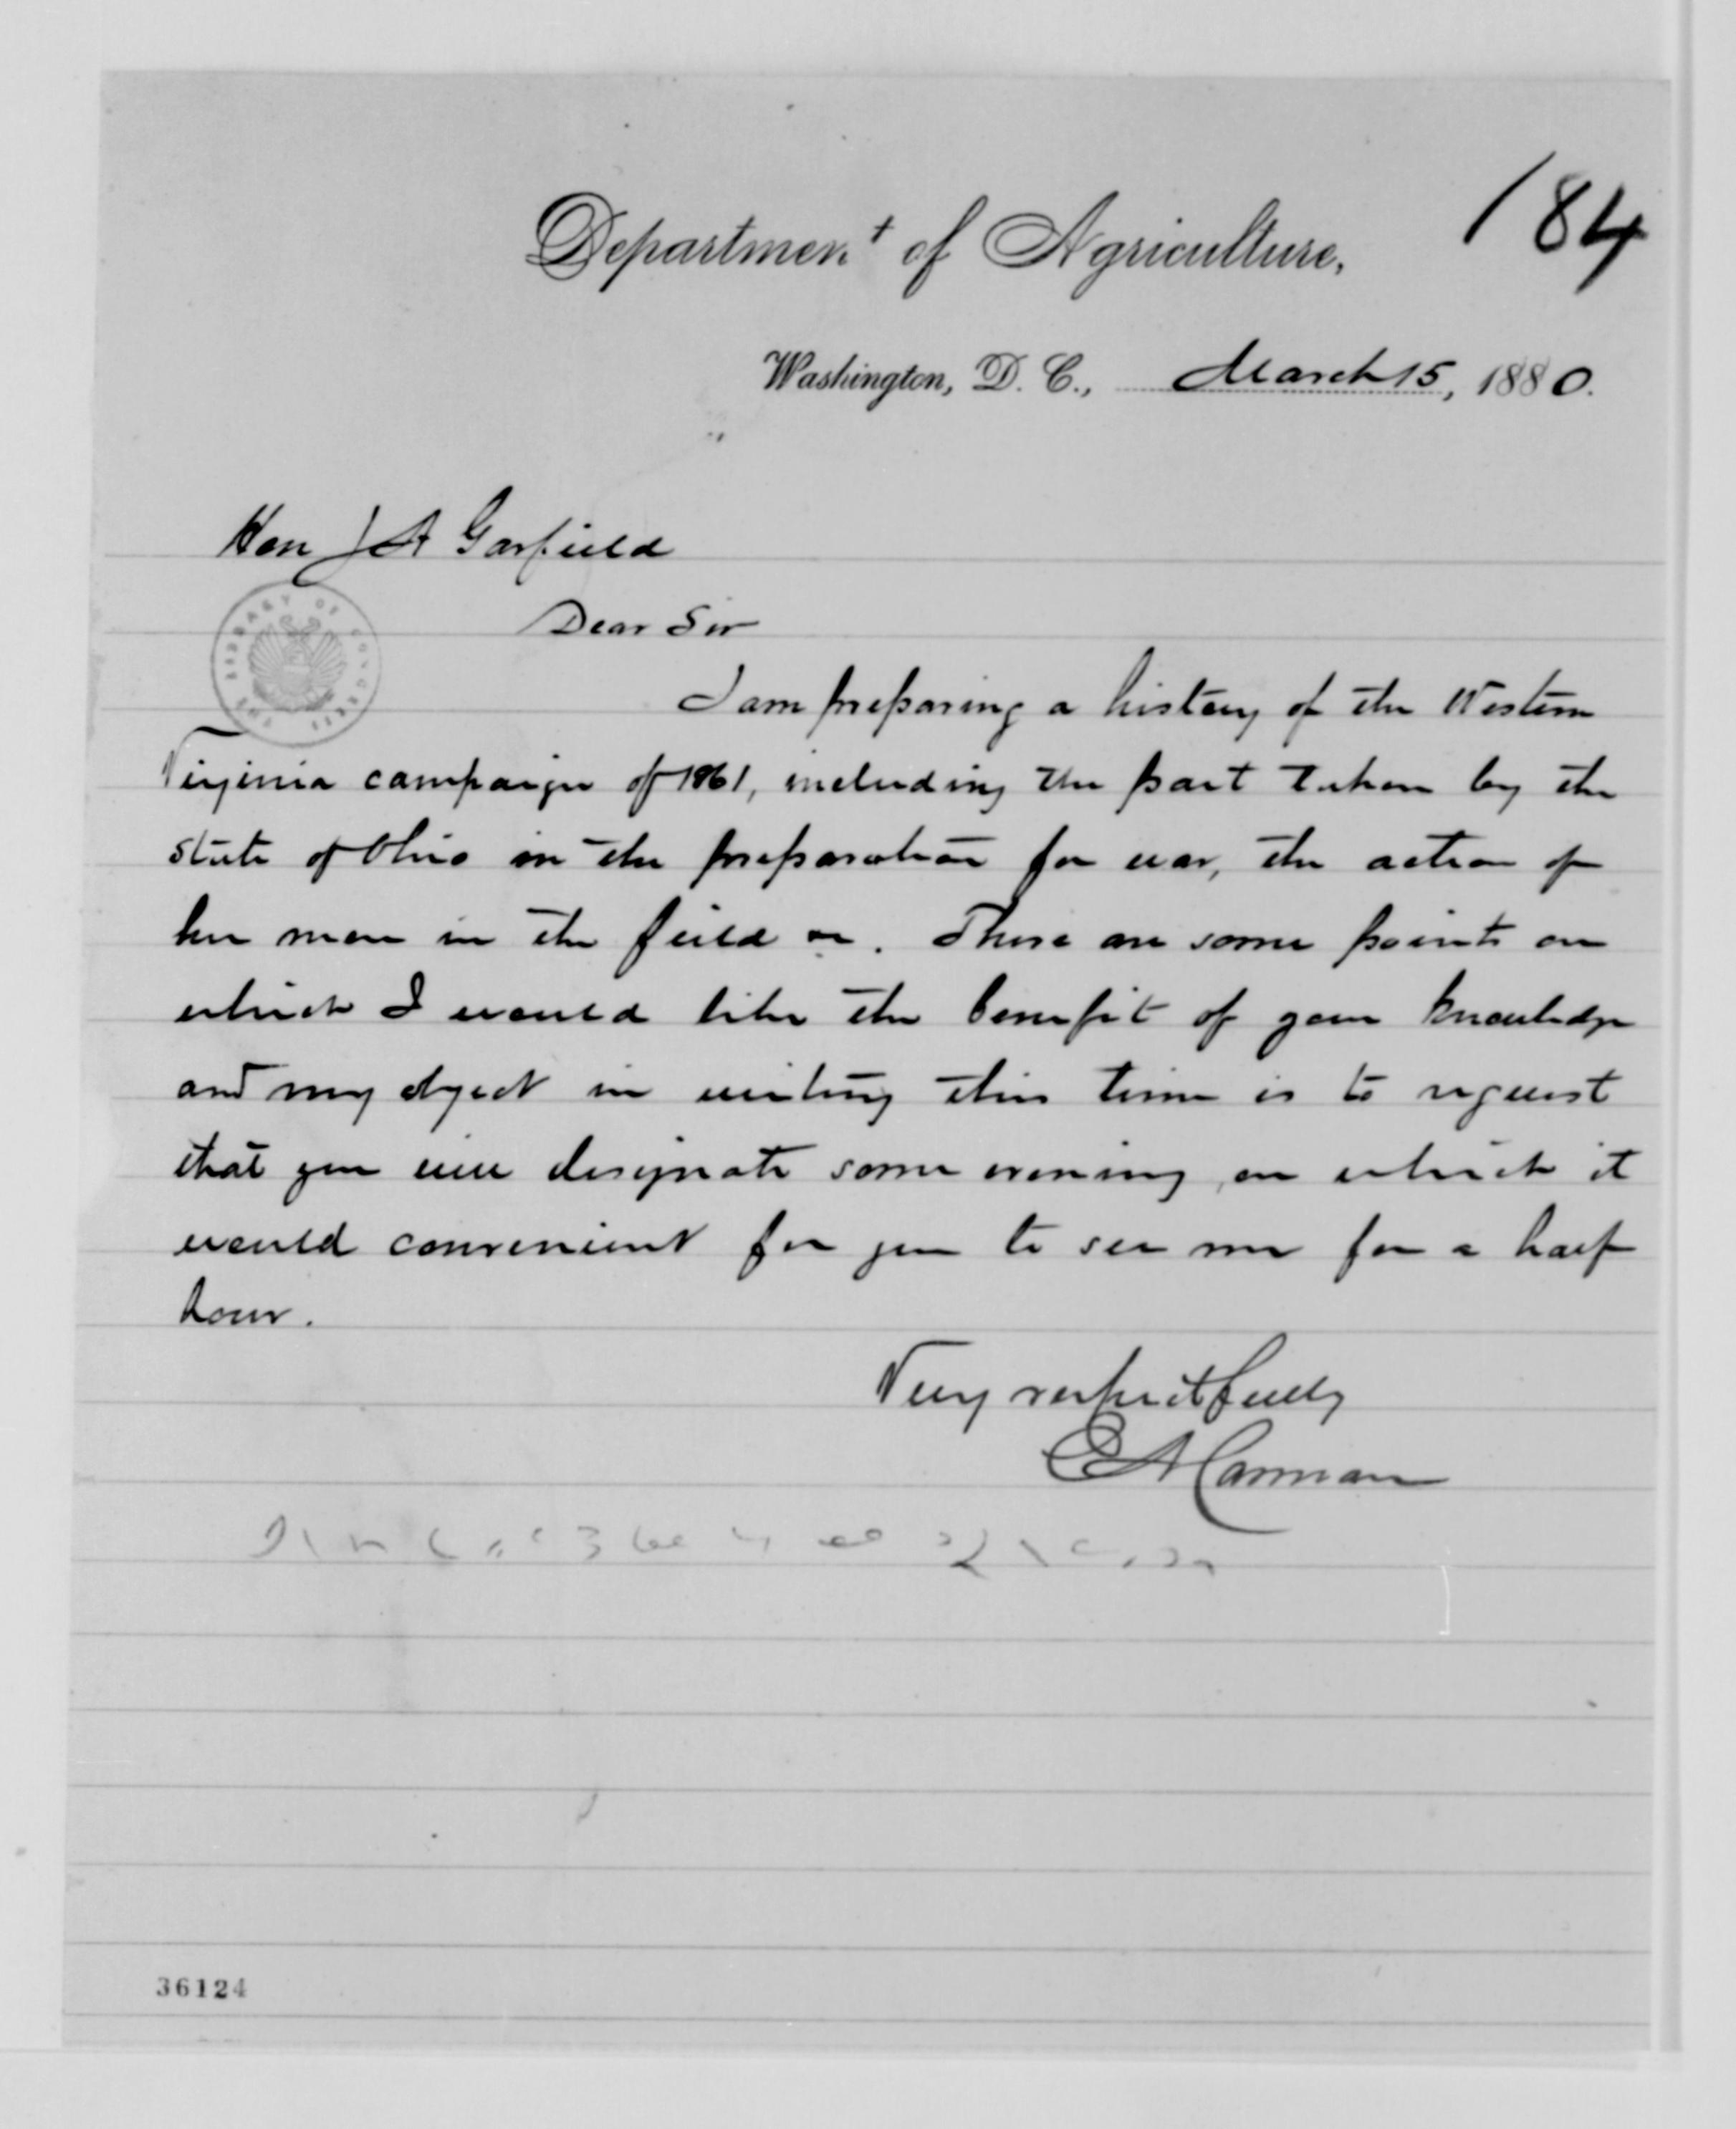 184
Department of Agriculture,
Washington, D. C., March 15, 1880.
Hon J A Garfield
Dear Sir
THE LIBRARY OF CONGRESS
I am preparing a history of the Western
Virginia campaign of 1861, including the part taken by the
State of Ohio in the preparation for war, the action of
her men in the field &c. There are some points on
which I would like the benefit of your knowledge
and my object in writing this time is to request
that you will designate some evening, on which it
would convenient for you to see me for a half
hour.
Very respectfully
E A Carman
36124